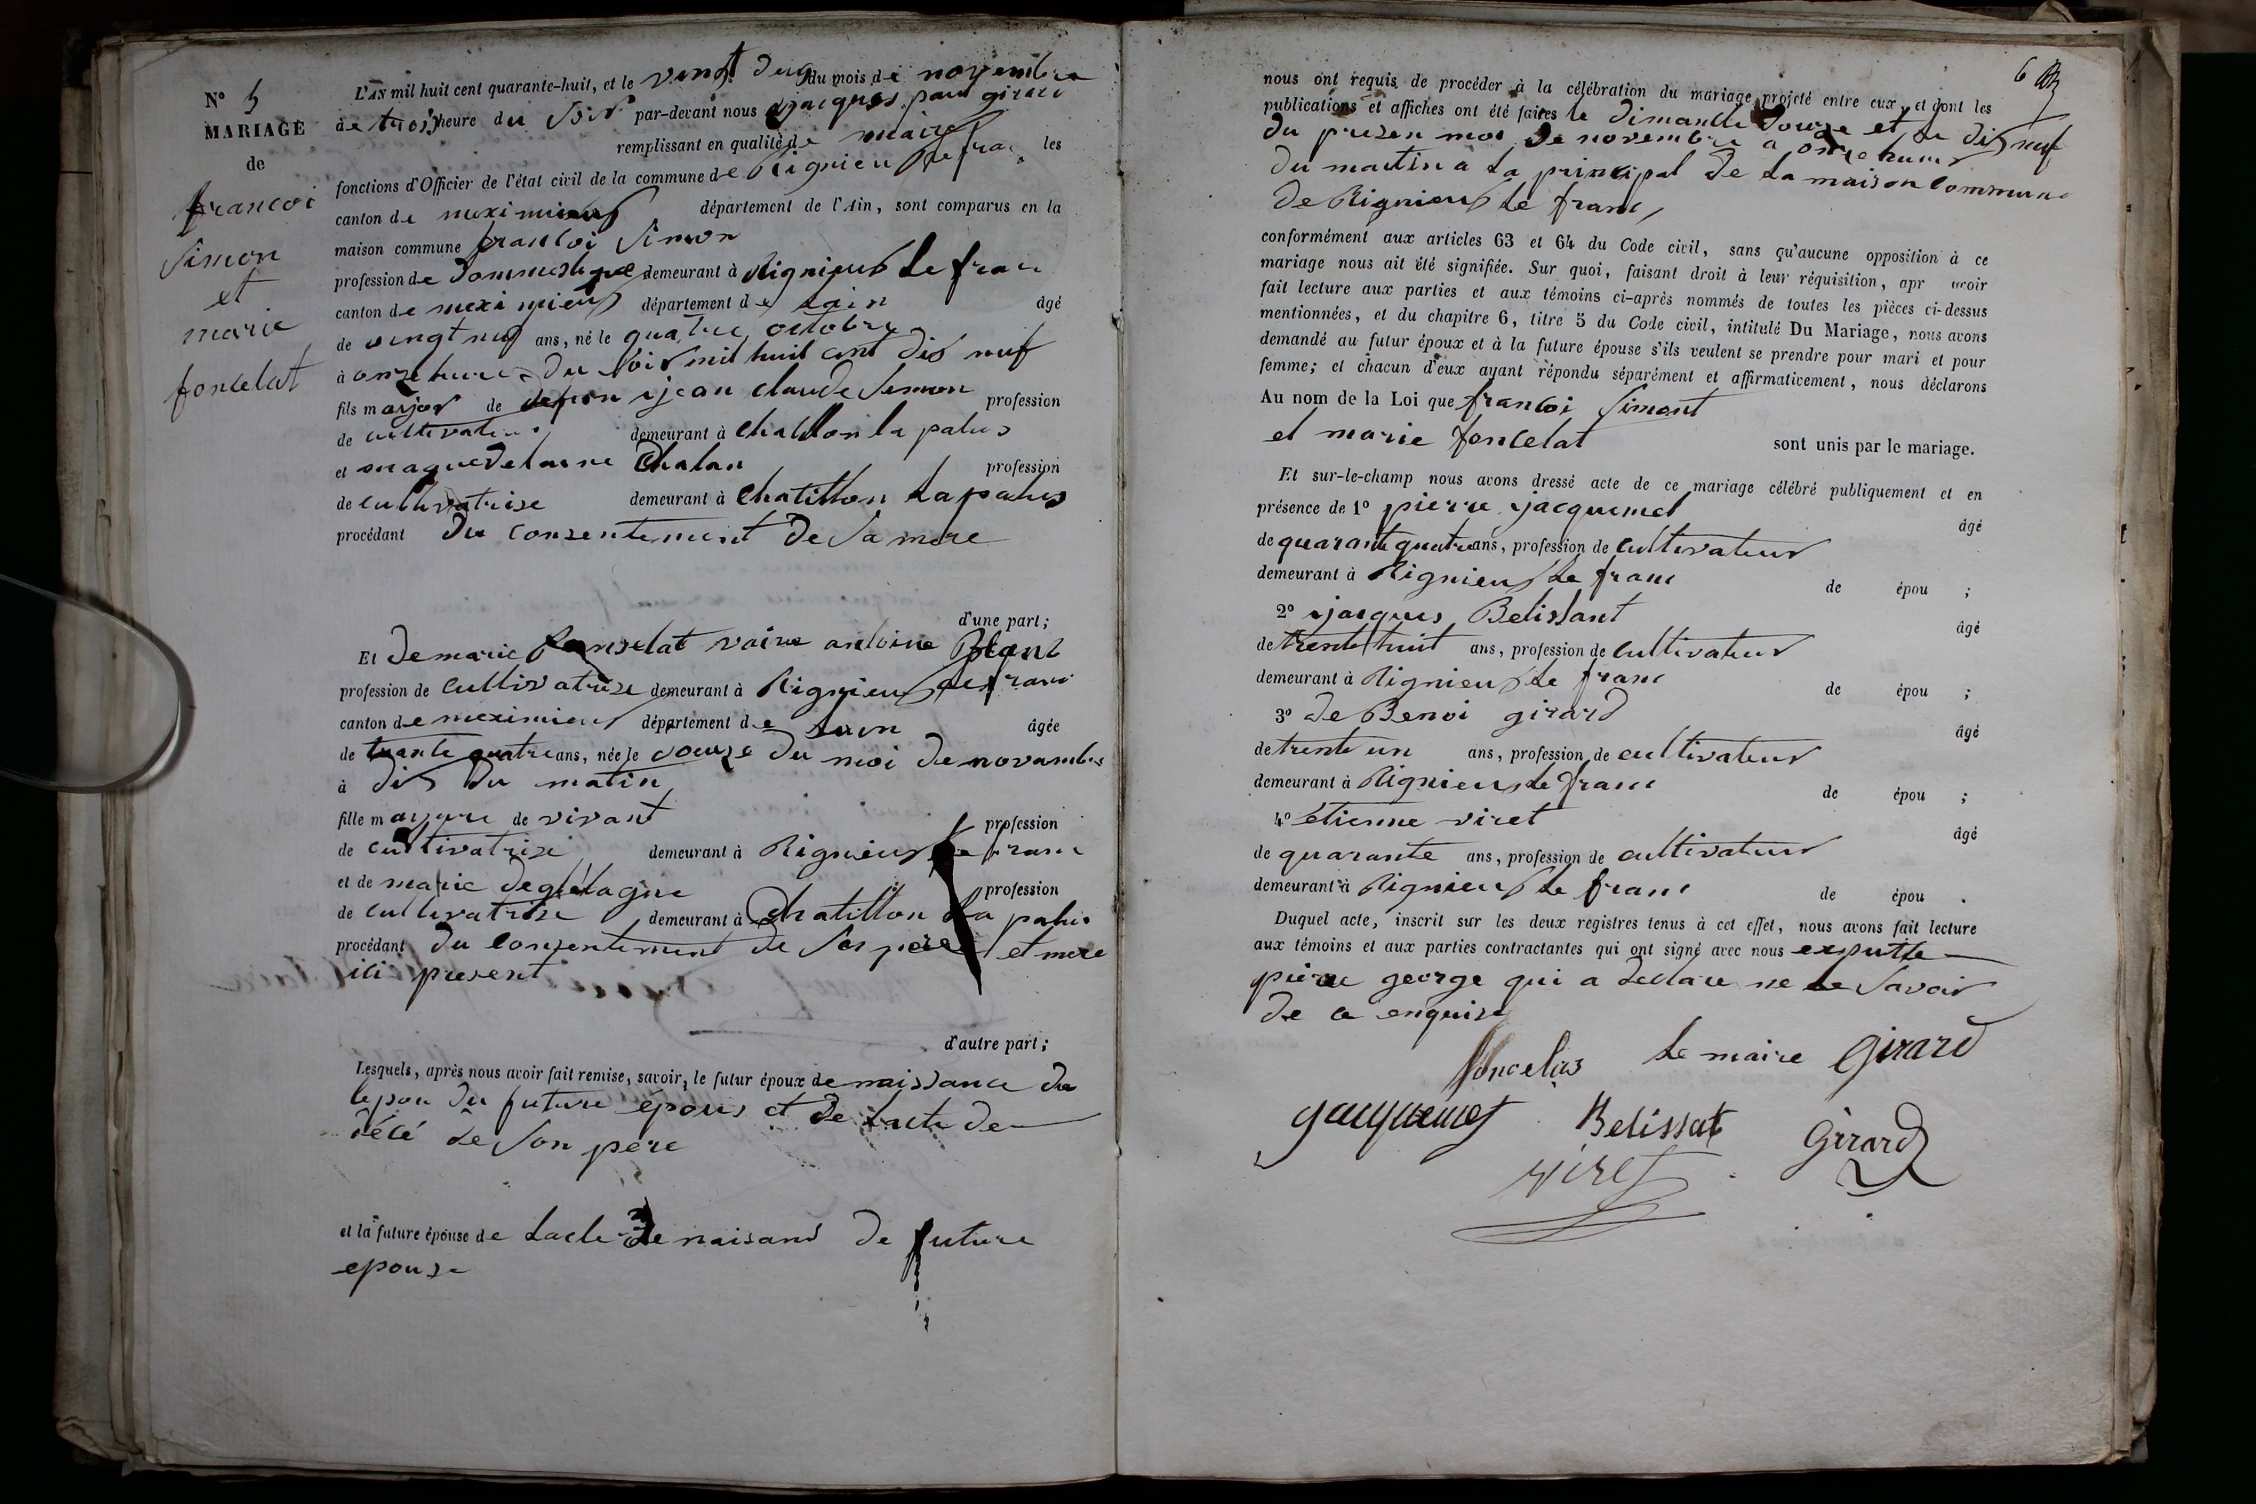 N° 5
MARIAGE
de
francoi
Simon
et
marie
foncelat
L'AN mil huit cent quarante-huit, et le vingt deux du mois de novembre
de trois heure du soir par-devant nous jacques paul girard
remplissant en qualité de maire les
fonctions d'Officier de l'état civil de la commune de Rignieux le franc
canton de meximieux département de l'Ain, sont comparus en la
maison commune francoi Simon
profession de Dommestique demeurant à Rignieux le franc
canton de meximieux département de Lain âgé
de vingt neuf ans, né le quatre octobre
à onze heure du Soir mil huit cent dix neuf
fils major de defun jean claude Simon profession
de cultivateur demeurant à chatillon la palus
et maguedelaine Chalan profession
de cultivatrise demeurant à Chatillon La palus
procédant du consentement de Sa mere
d'une part;
Et de marie fonselat vaive antoine Blanc
profession de cultivatrise demeurant à Rignieux le franc
canton de meximieux département de Lain âgée
de trante quatre ans, née le douze du moi de novambre
à dix du matin
fille mayure de vivant profession
de cultivatrise demeurant à Rignieux le franc
et de marie profession
de cultivatrise demeurant à Chatillon La palus
procédant du consentement de Ses père et mere
ici present
d'autre part;
Lesquels, après nous avoir fait remise, savoir, le futur époux de naissance du
lepou du future epous et de Lacte de
décé de Son père
et la future épouse de Lacte de naisans de future
epouse
6
nous ont requis de procéder à la célébration du mariage projeté entre eux, et dont les
publications et affiches ont été faites le dimanche douze et le dix neuf
du presen moi de novembre a onze heures
du mactin a La principal de La maison commune
de Rignieux le franc
conformément aux articles 63 et 64 du Code civil, sans qu'aucune opposition à ce
mariage nous ait été signifiée. Sur quoi, faisant droit à leur réquisition, apr avoir
fait lecture aux parties et aux témoins ci-après nommés de toutes les pièces ci-dessus
mentionnées, et du chapitre 6, titre 5 du Code civil, intitulé Du Mariage, nous avons
demandé au futur époux et à la future épouse s'ils veulent se prendre pour mari et pour
femme; et chacun d'eux ayant répondu séparément et affirmativement, nous déclarons
Au nom de la Loi que francoi Simont
et marie foncelat sont unis par le mariage.
Et sur-le-champ nous avons dressé acte de ce mariage célébré publiquement et en
présence de 1° pierre jacquemet âgé
de quarante quatre ans, profession de cultivateur
demeurant à Rignieux le franc de épou ;
2° jacques Belissant âgé
de trente huit ans, profession de cultivateur
demeurant à Rignieux le franc de épou ;
3° de Benoi girard âgé
de trente un ans, profession de cultivateur
demeurant à Rignieux le franc de épou ;
4° étienne viret âgé
de quarante ans, profession de cultivateur
demeurant à Rignieux le franc de épou .
Duquel acte, inscrit sur les deux registres tenus à cet effet, nous avons fait lecture
aux témoins et aux parties contractantes qui ont signé avec nous
pierre george qui a declare ne le Savoir
de ce enquise
foncelas Le maire Girard
jacquemet Belissat Girard
viret